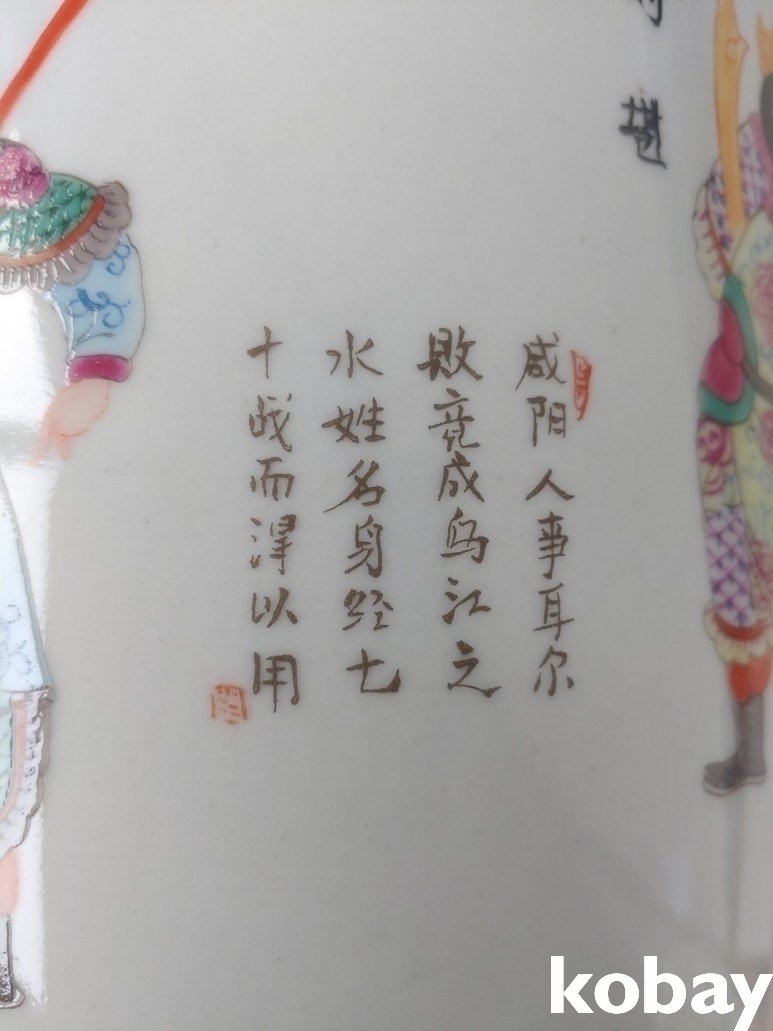 咸阳人事耳尔
败竟成乌江之
水姓名身经七
十战而浔以用
kobay